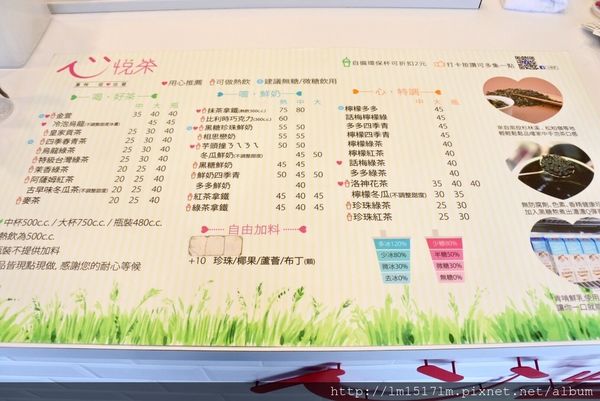 心悦茶
自備環保杯可折扣2元
打卡按讚可多集一點
用心推薦 可做熱飲 建議無糖/微糖飲用
喝,好茶
中 大 瓶
金萱 35 40 40
冷泡烏龍(不調整甜度冰量) 45
皇家貢茶 25 30 40
四季春青茶 25 30 40
烏龍綠茶 25 30 40
特級台灣綠茶 25 30 40
茉香綠茶 20 25 40
阿薩姆紅茶 20 25 40
古早味冬瓜茶(不調整甜度) 20 25 40
麥茶 20 25 40
喝,鮮奶
熱 中 大
抹茶拿鐵(熱飲360c.c.) 75 80
比利時巧克力(360c.c.) 60
黑糖珍珠鮮奶 55 50
相思戀奶 55 50
芋頭
冬瓜鮮奶(不調整甜度) 45 50
黑糖鮮奶 45 45
鮮奶四季青 50 45 50
多多鮮奶 40
紅茶拿鐵 45 40 45
綠茶拿鐵 45 40 45
心,特調
中 大 瓶
檸檬多多 45
話梅檸檬綠 45
多多四季青 45
檸檬四季青 45
檸檬綠茶
檸檬紅茶
話梅綠茶
多多綠茶
洛神花茶 30 35 40
檸檬冬瓜(不調整甜度) 30 35
珍珠綠茶 30 35
珍珠紅茶 30 35
中杯500c.c. / 大杯750c.c. / 瓶裝480c.c.
熱飲為500c.c.
瓶裝不提供加料
品皆現點現做, 感謝您的耐心等候
自由加料
+10 珍珠/椰果/蘆薈/布丁(顆)
多冰120%
少冰80%
微冰30%
去冰0%
少糖80%
半糖50%
微糖30%
無糖0%
http://lm15171m.pixnet.net/album